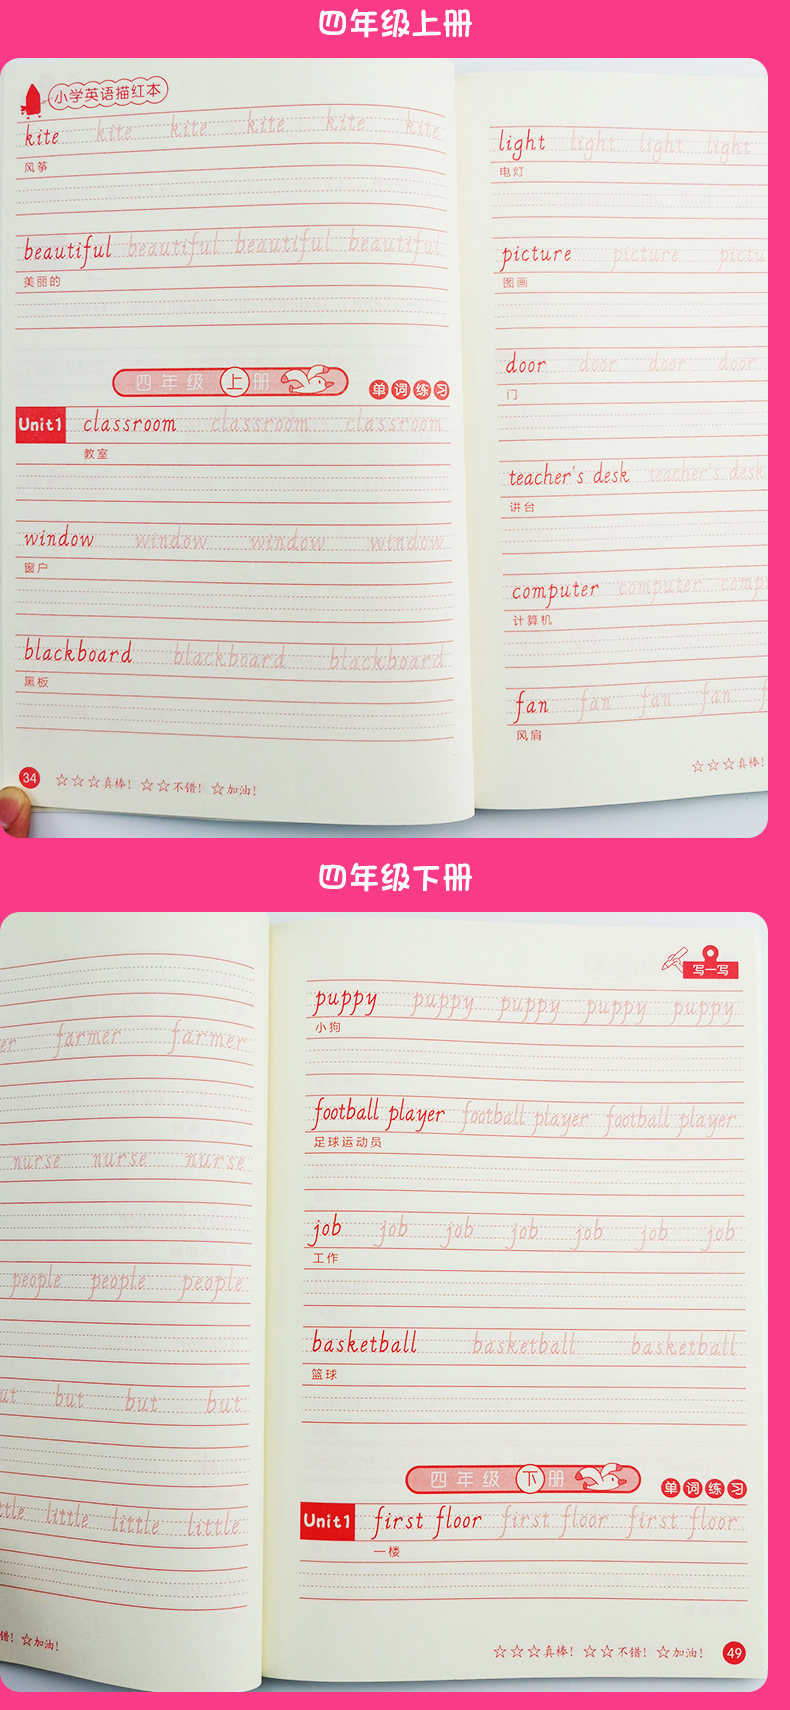 四年级上册
小学英语描红本
kite kite kite kite kite kite
风筝
beautiful beautiful beautiful beautiful
美丽的
四年级上册
单词练习
Unit1 classroom classroom classroom
教室
window window window window
窗户
blackboard blackboard blackboard
黑板
34 ☆☆☆真棒! ☆☆不错! ☆加油!
light light light light
电灯
picture picture pictu
图画
door door door door
门
teacher's desk teacher's desk
讲台
computer computer comp
计算机
fan fan fan fan f
风肩
☆☆☆真棒!
四年级下册
er farmer farmer
nurse nurse nurse
people people people
ut but but but
ttle little little little
错! ☆加油!
写一写
puppy puppy puppy puppy puppy
小狗
football player football player football player
足球运动员
job job job job job job job
工作
basketball basketball basketball
篮球
四年级下册
单词练习
Unit1 first floor first floor first floor
一楼
☆☆☆真棒! ☆☆不错! ☆加油! 49